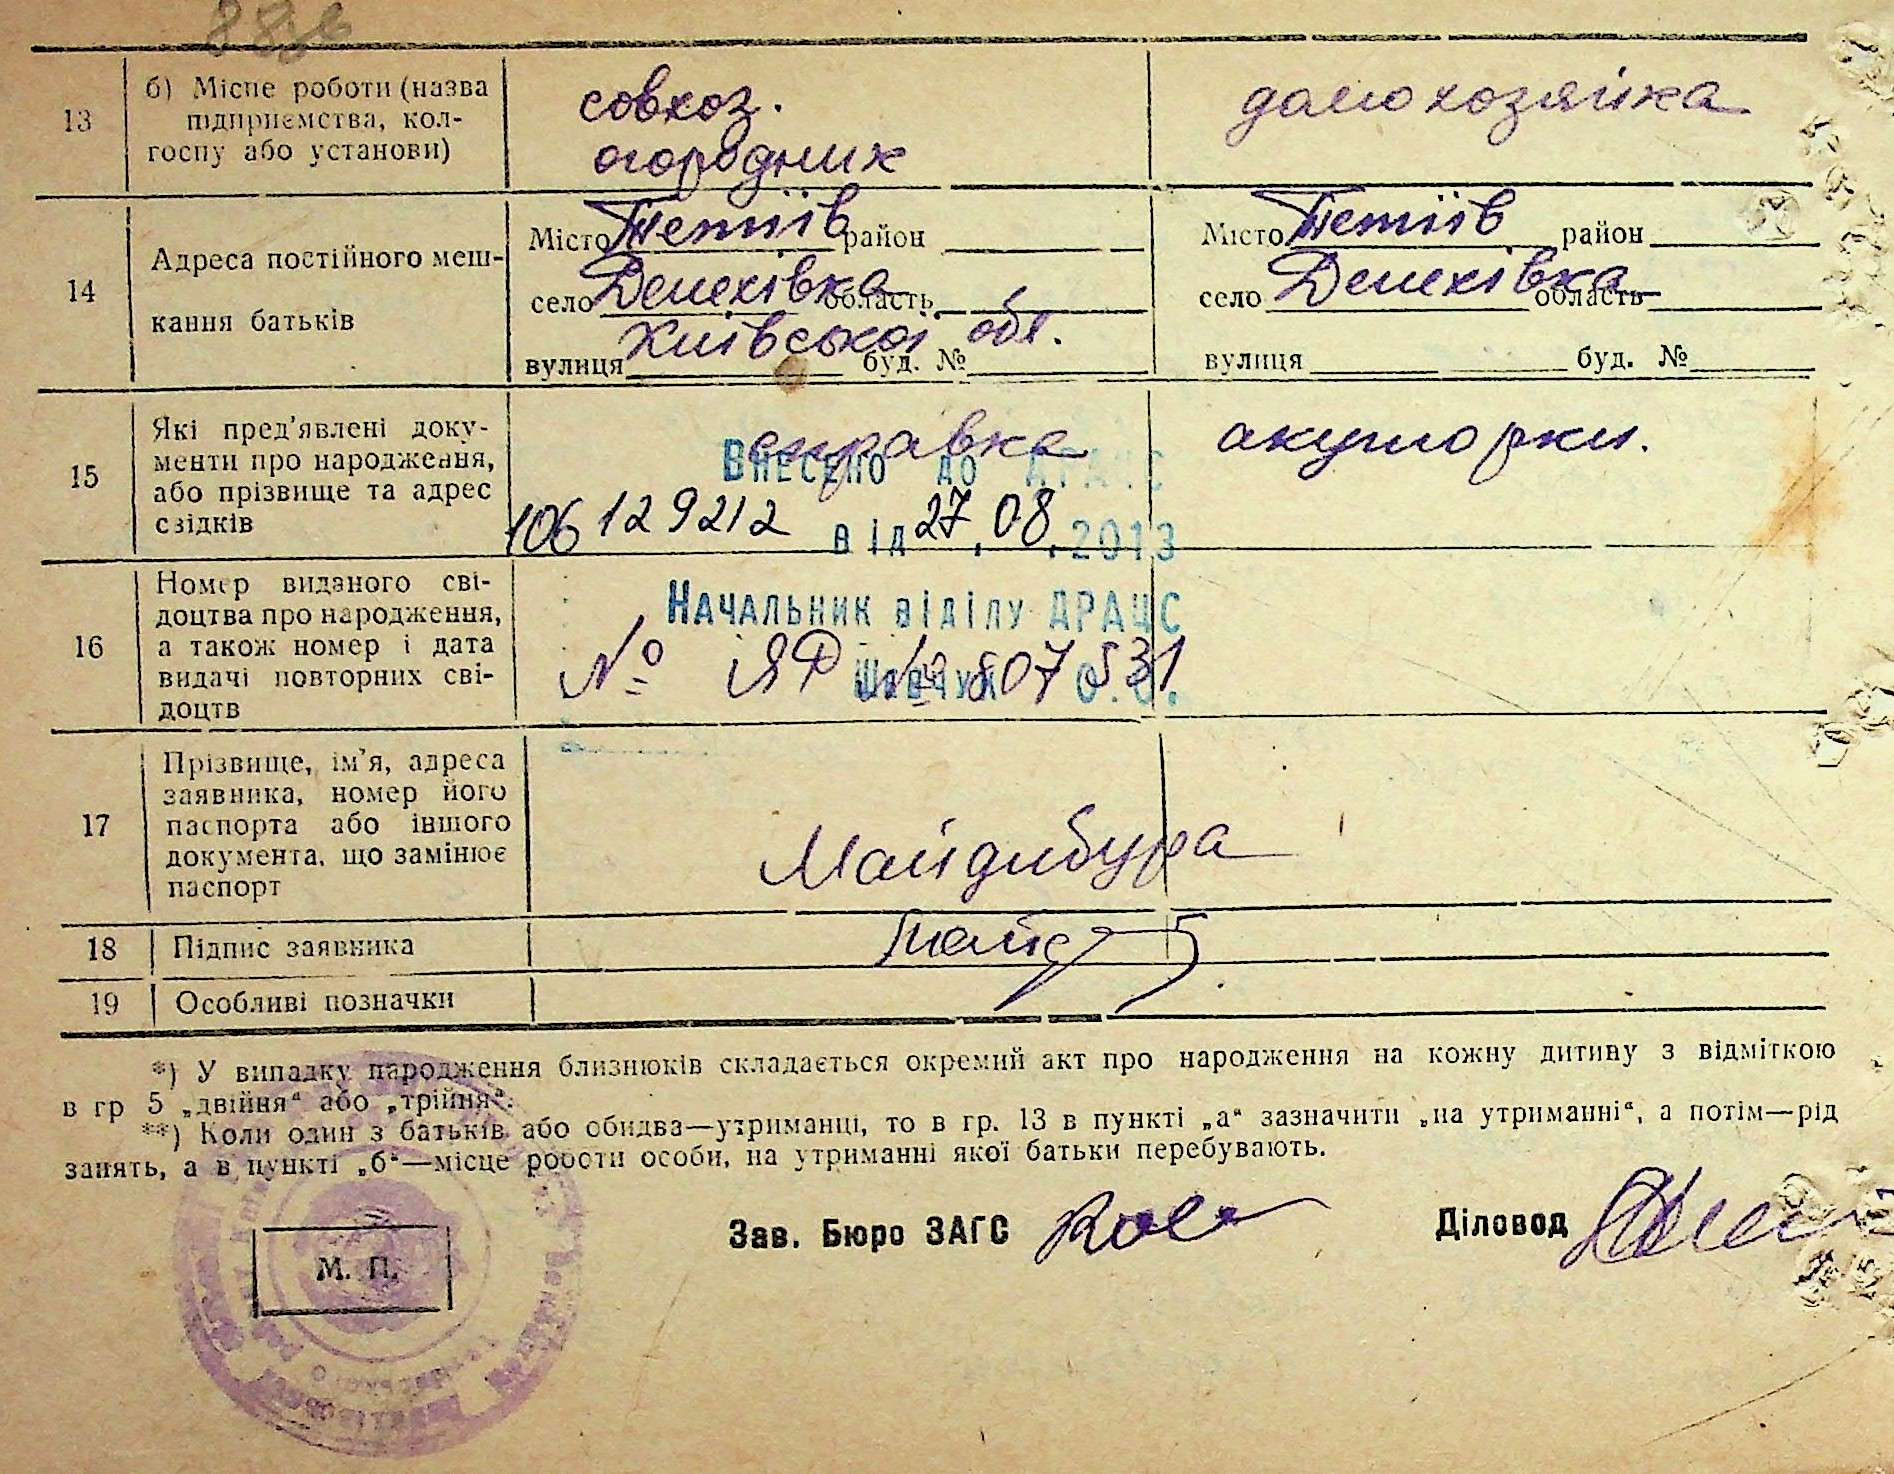 13
б) Місце роботи (назва
підприємства, кол-
госпу або установи)
совхоз.
огородник
домохозяйка
14
Адреса постійного меш-
кання батьків
Місто Тетіїв район
село Денехівка область
Київської обл.
вулиця буд. №
Місто Тетіїв район
село Денехівка область
вулиця буд. №
15
Які пред'явлені доку-
менти про народження,
або прізвище та адрес
свідків
справка акушорки.
Внесено до ДРАЦС
106 129212 від 27.08.2013
Начальник відділу ДРАЦС
16
Номер виданого сві-
доцтва про народження,
а також номер і дата
видачі повторних сві-
доцтв
№ ЯФ № 807531
17
Прізвище, ім'я, адреса
заявника, номер його
паспорта або іншого
документа, що замінює
паспорт
Майдибура
18
Підпис заявника
19
Особливі позначки
*) У випадку народження близнюків складається окремий акт про народження на кожну дитину з відміткою
в гр 5 „двійня“ або „трійня“.
**) Коли один з батьків або обидва—утриманці, то в гр. 13 в пункті „а“ зазначити „на утриманні“, а потім—рід
занять, а в пункті „б“—місце роботи особи, на утриманні якої батьки перебувають.
М. П.
Зав. Бюро ЗАГС
Діловод